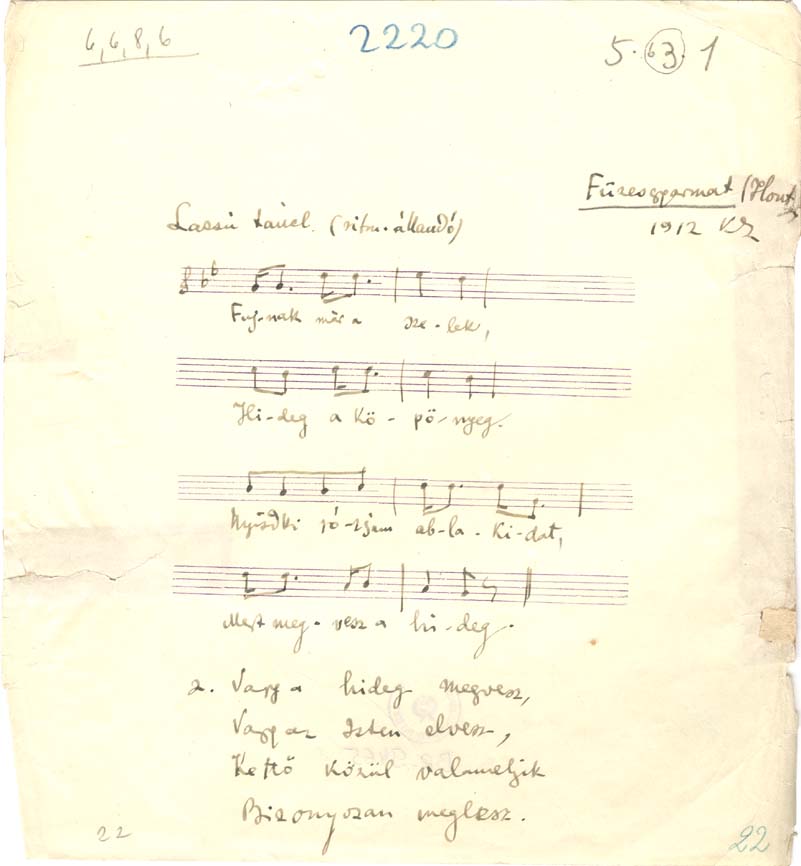 6, 6, 8, 6
2220
5. 63. 1
Füzesgyarmat (Hont
1912 KZ
Lassú táncl. (ritm. állandó)
Fuj-nak már a sze-lek,
Hi-deg a Kö-pö-nyeg.
Nyisdki ró-zsám ab-la-ki-dat,
Mert meg-vesz a hi-deg.
2. Vagy a hideg megvesz,
Vagy az Isten elvesz,
Kettő Közül valamelyik
Bizonyosan meglesz.
22
22